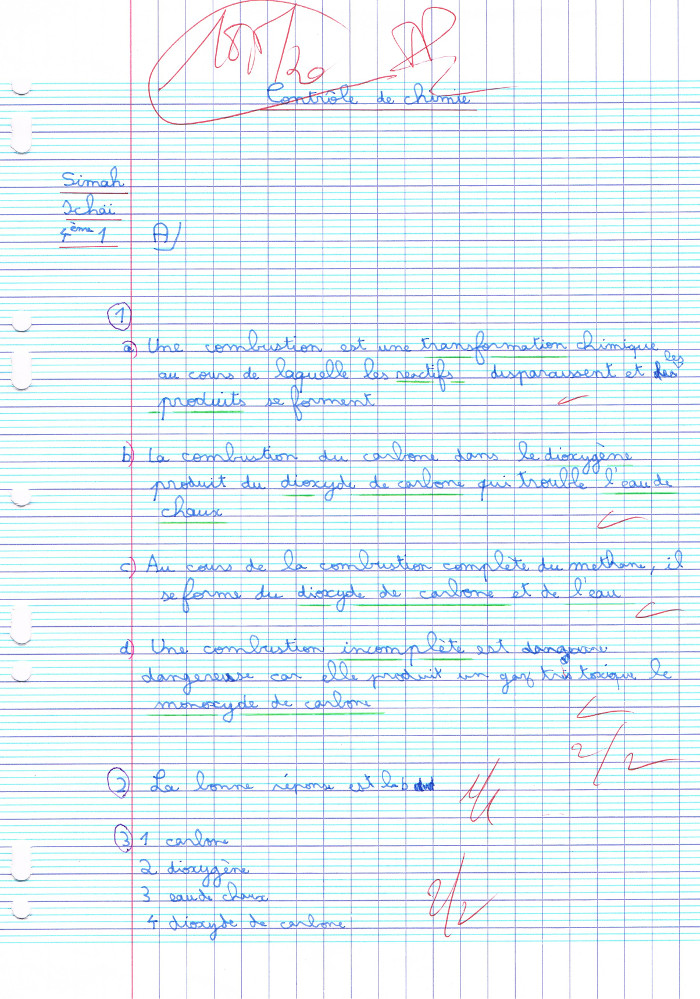 /20
Contrôle de chimie
Simah
Ichaï
4ème 1
A/
1
a) Une combustion est une transformation chimique
au cours de laquelle les reactifs disparaissent et les
produits se forment
b) La combustion du carbone dans le dioxygène
produit du dioxyde de carbone qui trouble l'eau de
chaux
c) Au cours de la combustion complète du methane, il
se forme du dioxyde de carbone et de l'eau
d) Une combustion incomplète est
dangereuse car elle produit un gaz très toxique le
monoxyde de carbone
2/2
2 La bonne réponse est la b
1/1
3 1 carbone
2 dioxygène
3 eau de chaux
2/2
4 dioxyde de carbone